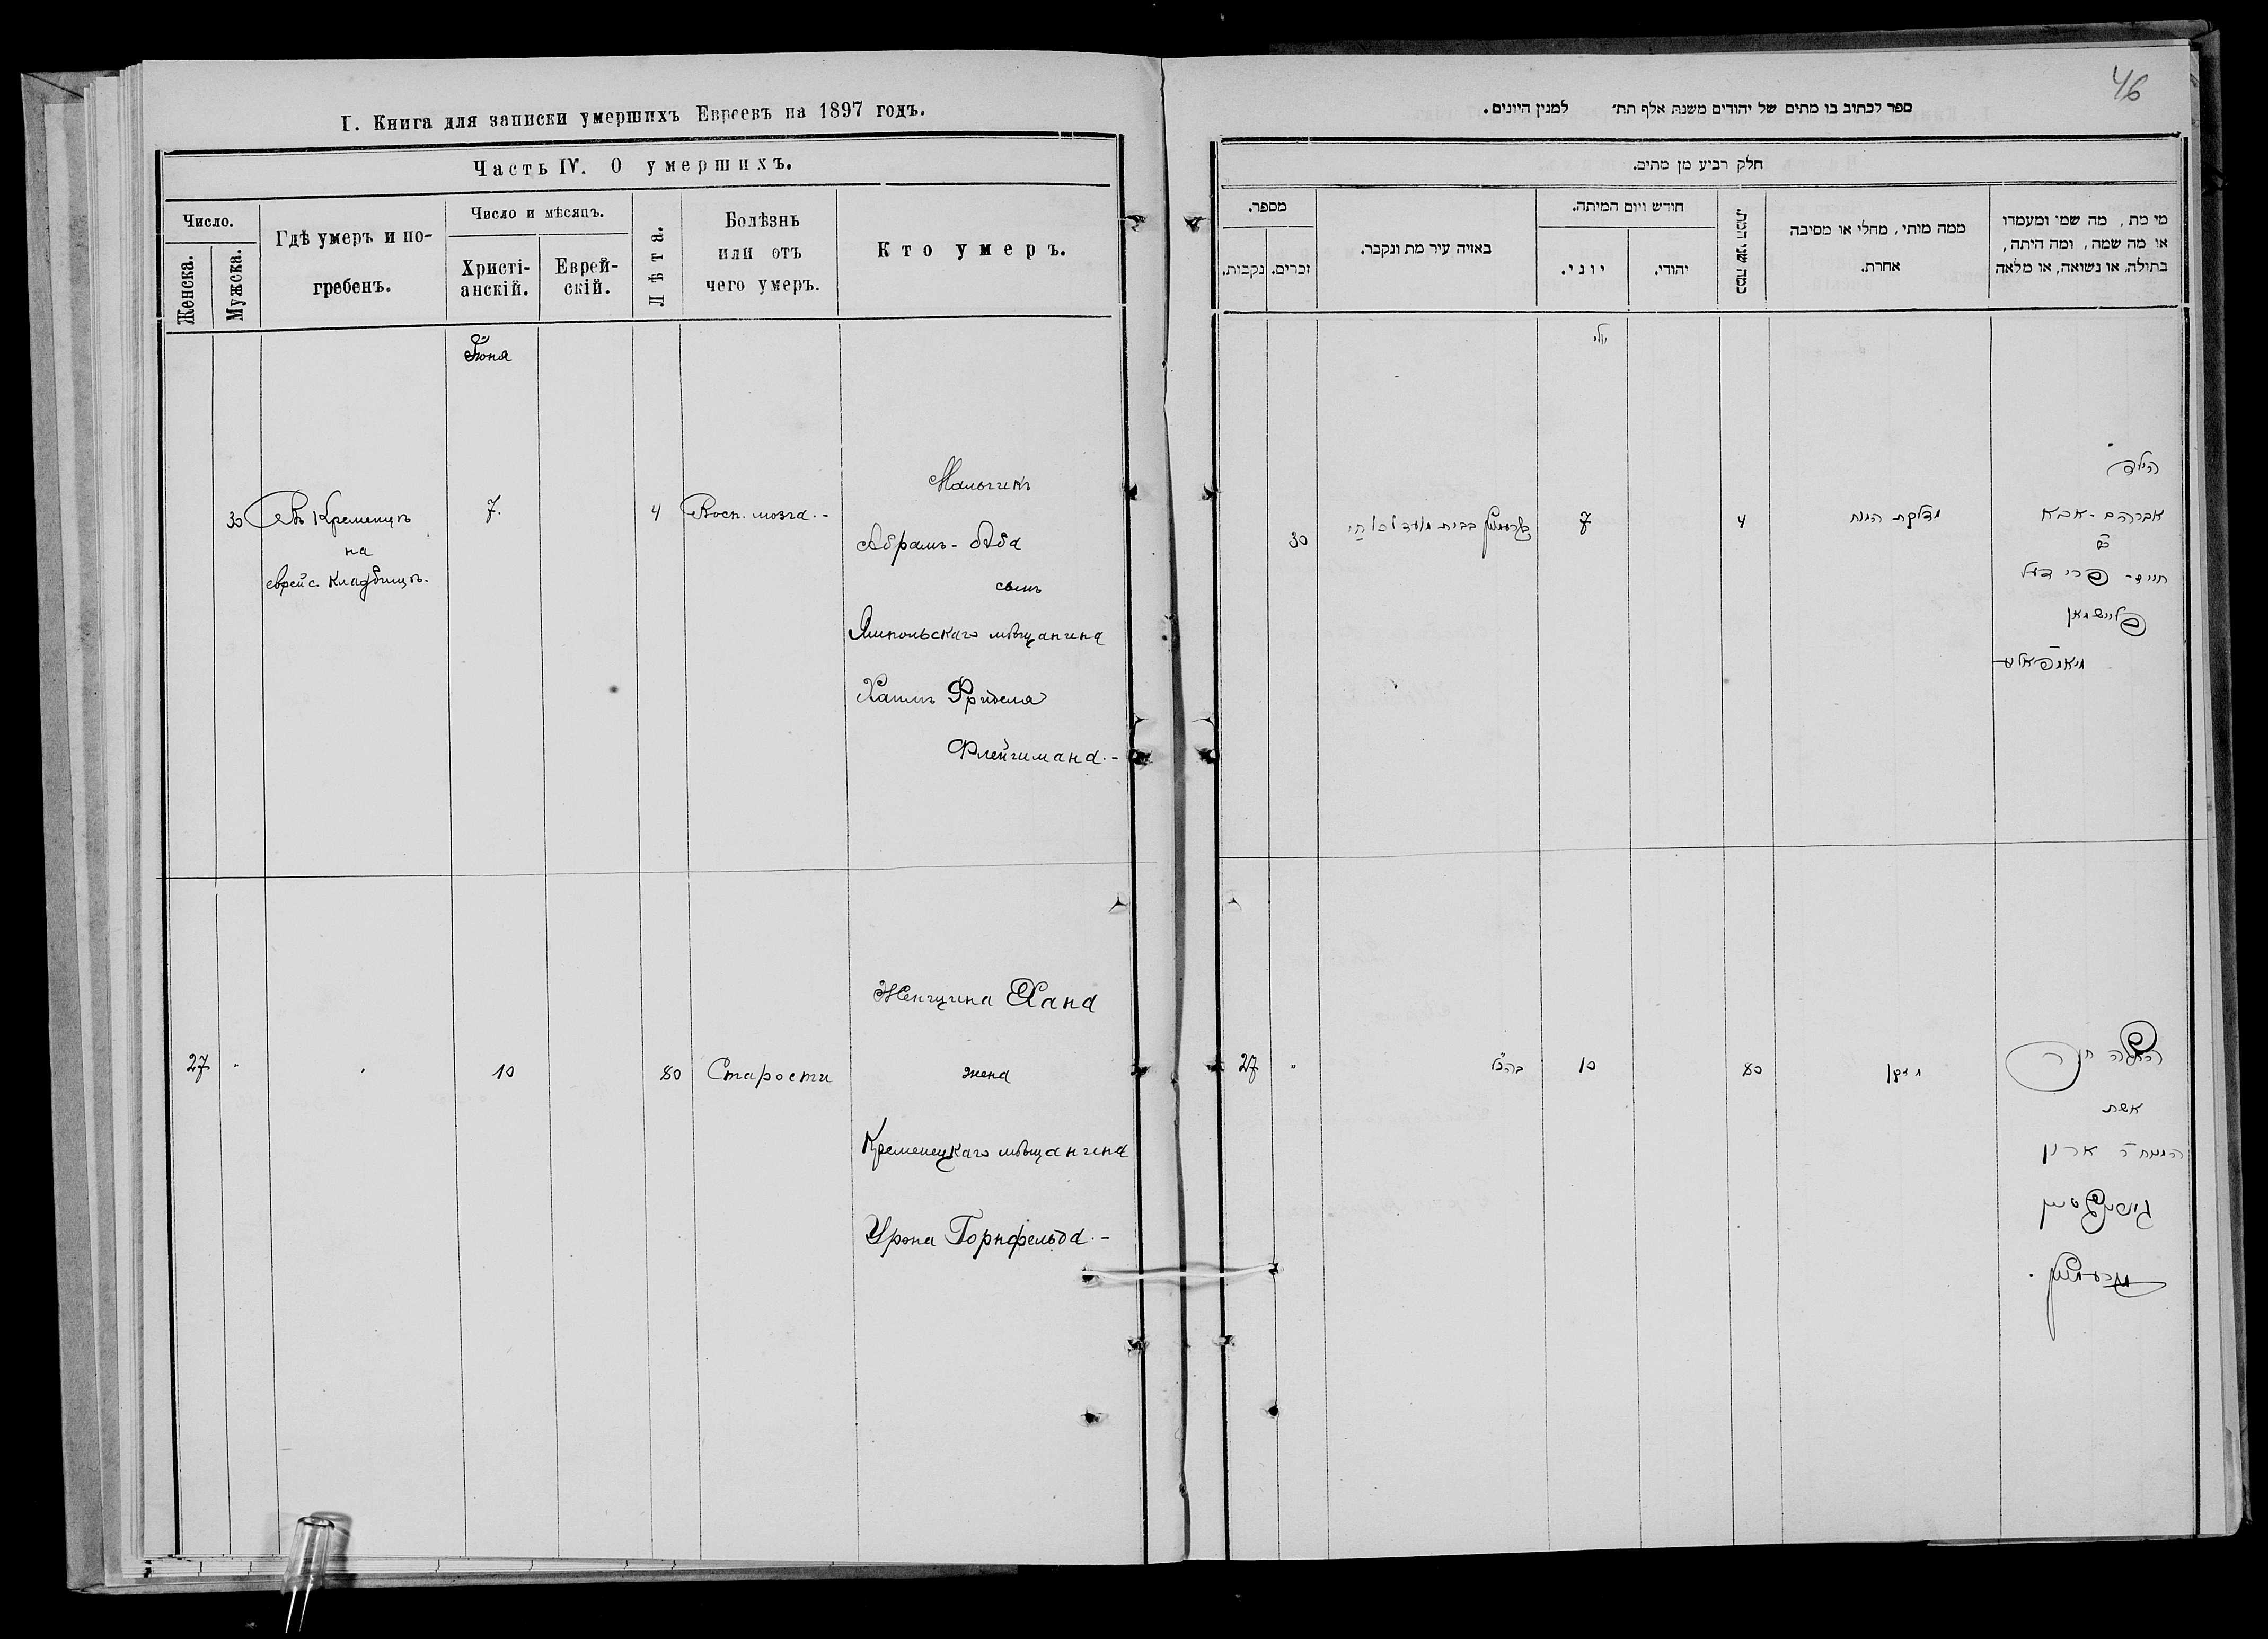 46
I. Книга для записки умершихъ Евреевъ на 1897 годъ.
Часть IV. О умершихъ.
Число.
Женска.
Мужска.
Гдѣ умеръ и по-
гребенъ.
Число и мѣсяцъ.
Христі-
анскій.
Еврей-
скій.
Лѣта.
Болѣзнь
или отъ
чего умеръ.
Кто умеръ.
Іюня
30
Въ Кременцѣ
на
еврейс. кладбищѣ.
7.
4
Восп. мозга.-
Мальчикъ
Абрамъ-Аба
сынъ
Ямпольскаго мѣщанина
Хаимъ Фриделя
Флейшмана.-
27
10
80
Старости
Женщина Хана
жена
Кременецкаго мѣщанина
Урона Горнфельда.-
ספר לכתוב בו מתים של יהודים משנת אלף תת׳ למנין היונים.
חלק רביע מן מתים.
מספר.
נקבות.
זכרים.
באיזה עיר מת ונקבר.
חודש ויום המיתה.
יוני.
יהודי.
כמה שני המת.
ממה מותי, מחלי או מסיבה
אחרת.
מי מת, מה שמו ומעמדו
או מה שמה, ומה היתה,
בתולה, או נשואה, או מלאה
יולי
30
7
4
מדלקת המוח
הילד
אברהם-אבא
פליישמאן
27
10
80
מזקן
אשת
ארון